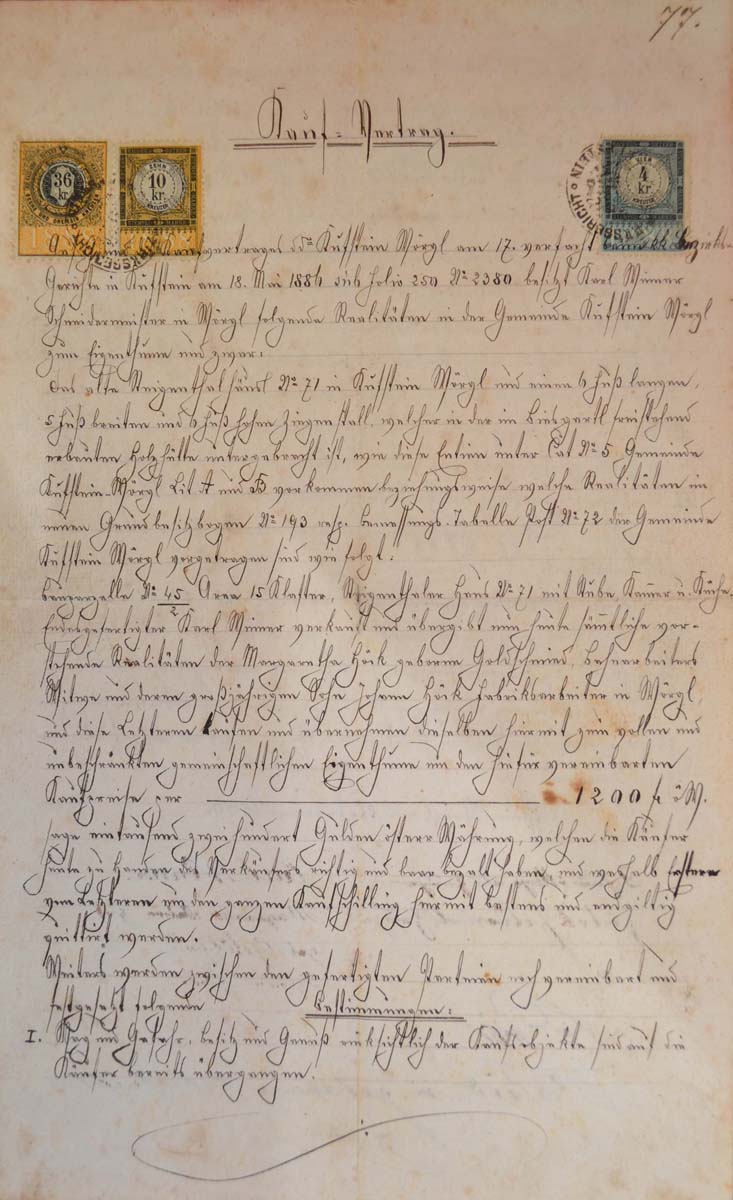 77.
Kauf-Vertrag.
36
kr
ZEHN
10
kr.
KREUZER
VIER
4
kr.
KREUZER
Kaufvertrages ddo Kufstein Wörgl am 17. verfacht beim kk Bezirks-
Gerichte in Kufstein am 18. Mai 1886 sub folio 250 No 2380 besitzt Karl Wimer
Schneidermeister in Wörgl folgende Realitäten in der Gemeinde Kufstein Wörgl
zum Eigenthume und zwar:
Das alte Steigenthalhäusl No 71 in Kufstein Wörgl und einen 6 Fuß langen,
5 Fuß breiten und 6 Fuß hohen Ziegenstall, welcher in der im freistehend
erbauten Holzhütte untergebracht ist, wie diese Entien unter Cat No 5 Gemeinde
Kufstein-Wörgl Lit A und B vorkommen beziehungsweise welche Realitäten im
neuen Grundbesitzbogen No 193 resp. Bemessungs-Tabelle Post No 72 der Gemeinde
Kufstein Wörgl vorgetragen sind wie folgt:
Bauparzelle No 45/2 Area 15 Klafter, Steigenthaler Haus No 71 mit Stube, Kammer u. Küche.
Endesgefertigter Karl Wimer verkauft und übergibt nun heute sämtliche vor-
stehende Realitäten der Margaretha Höck geborne Goldschmied, Bahnarbeiters
Witwe und deren großjährigen Sohne Johann Höck Fabriksarbeiter in Wörgl,
und diese Letzteren kaufen und übernehmen dieselben hiermit zum vollen und
unbeschränkten gemeinschaftlichen Eigenthume um den hiefür vereinbarten
Kaufpreise per 1200 fl ö.W.
sage eintausend zweihundert Gulden österr Währung, welchen die Käufer
heute zu Handen des Verkäufers richtig und baar bezalt haben, und weshalb Erstere
vom Letzteren um den ganzen Kaufschilling hiermit bestens und endgiltig
quittirt werden.
Weiters werden zwischen den gefertigten Parteien noch vereinbart und
festgesetzt folgende Bestimmungen:
I. Wag und Gefahr, Besitz und Genuß rücksichtlich der Kaufsobjekte sind auf die
Käufer bereits übergangen.